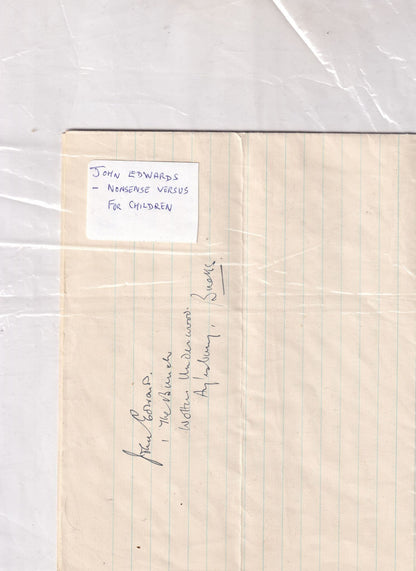 JOHN EDWARDS
- NONSENSE VERSUS
FOR CHILDREN
John Edwards.
The
Wotton Underwood.
Aylesbury, Bucks.